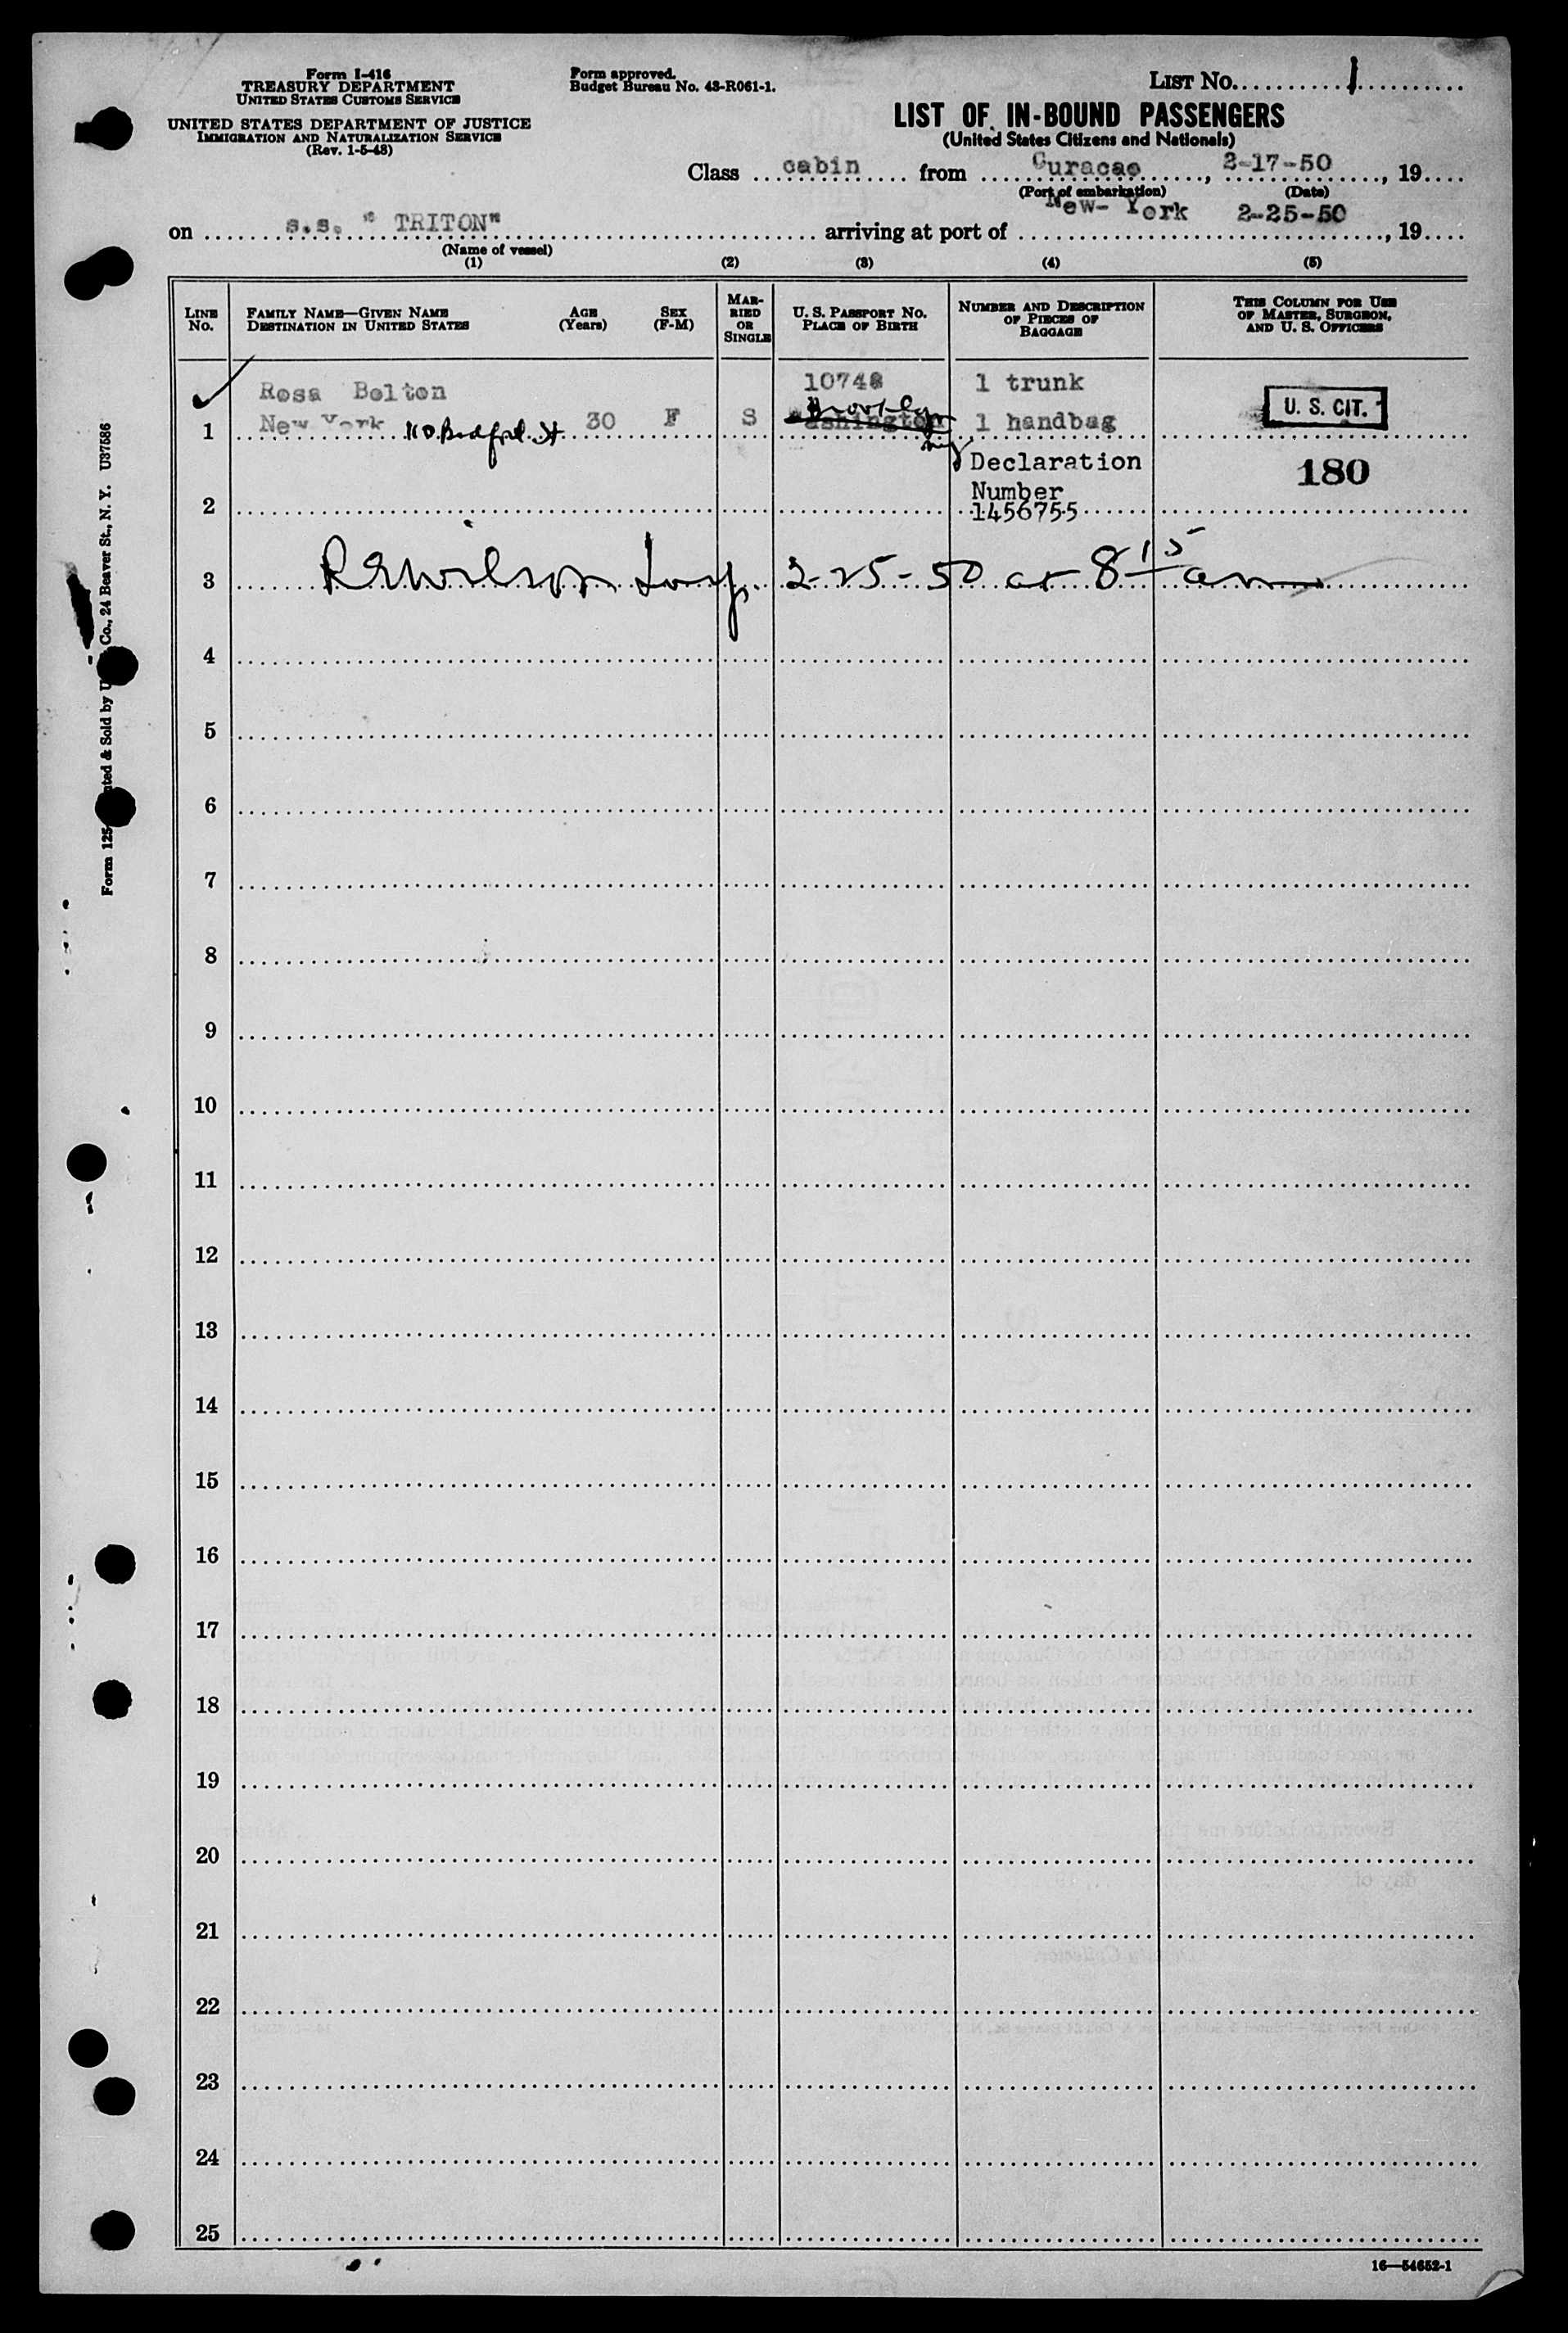 Form I-416
TREASURY DEPARTMENT
UNITED STATES CUSTOMS SERVICE
UNITED STATES DEPARTMENT OF JUSTICE
IMMIGRATION AND NATURALIZATION SERVICE
(Rev. 1-5-48)
Form approved.
Budget Bureau No. 43-R061-1.
LIST No. 1
LIST OF IN-BOUND PASSENGERS
(United States Citizens and Nationals)
Class cabin from Curacao, 2-17-50, 19
(Port of embarkation) (Date)
on s.s. " TRITON" arriving at port of New- York 2-25-50, 19
(Name of vessel)
(1) (2) (3) (4) (5)
LINE No.
FAMILY NAME—GIVEN NAME
DESTINATION IN UNITED STATES
AGE (Years)
SEX (F-M)
MARRIED OR SINGLE
U. S. PASSPORT NO.
PLACE OF BIRTH
NUMBER AND DESCRIPTION OF PIECES OF BAGGAGE
THIS COLUMN FOR USE OF MASTER, SURGEON, AND U. S. OFFICERS
Rosa Bolton 10748 1 trunk
Brooklyn
1 New York 110 Bedford St 30 F S Washington 1 handbag U. S. CIT.
NY
Declaration 180
Number
2 1456755
3 2-25-50 at 8 15 am
4
5
6
7
8
9
10
11
12
13
14
15
16
17
18
19
20
21
22
23
24
25
16—54652-1
Form 125 Printed & Sold by Co., 24 Beaver St., N. Y. U37586